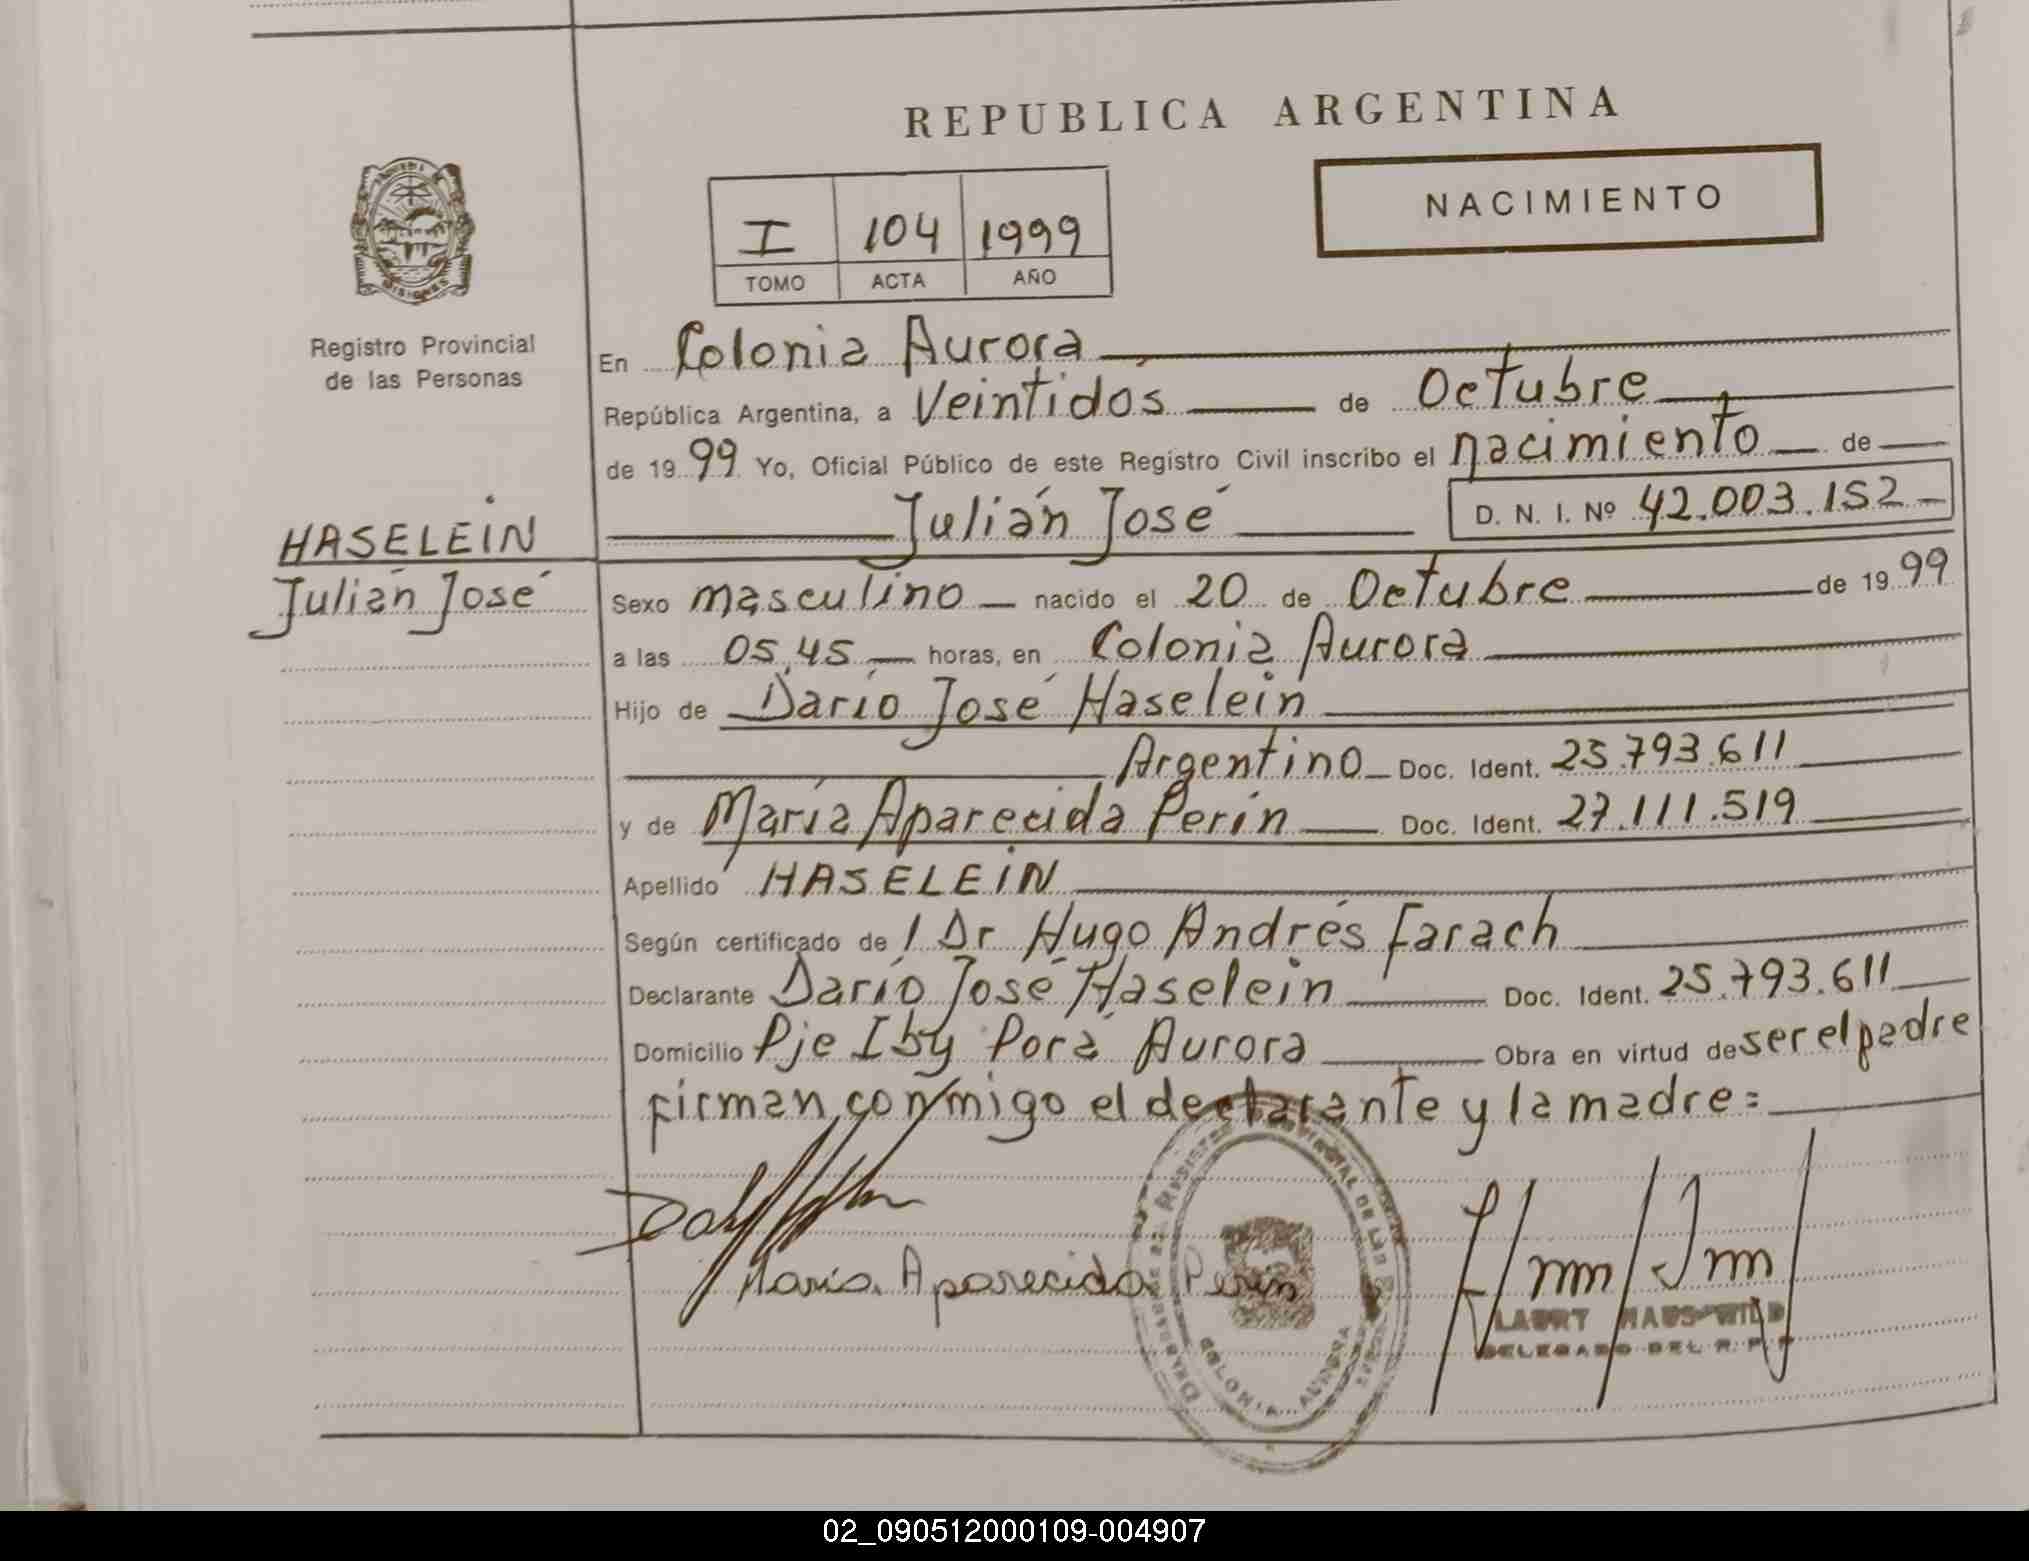 REPUBLICA ARGENTINA
NACIMIENTO
I 104 1999
TOMO ACTA AÑO
MISIONES
Registro Provincial
de las Personas
HASELEIN
Julián José
En Colonia Aurora
República Argentina, a Veintidos de Octubre
de 1999 Yo, Oficial Público de este Registro Civil inscribo el nacimiento de
Julián José D. N. I. Nº 42.003.152
Sexo masculino nacido el 20 de Octubre de 1999
a las 05,45 horas, en Colonia Aurora
Hijo de Darío José Haselein
Argentino Doc. Ident. 25.793.611
y de María Aparecida Perin Doc. Ident. 27.111.519
Apellido HASELEIN
Según certificado de / Dr Hugo Andrés Farach
Declarante Darío José Haselein Doc. Ident. 25.793.611
Domicilio Pje Iby Porá Aurora Obra en virtud de ser el padre
firman conmigo el declarante y la madre=
María Aparecida Perin
COLONIA AURORA
DELEGADO DEL R. P. P
02_090512000109-004907